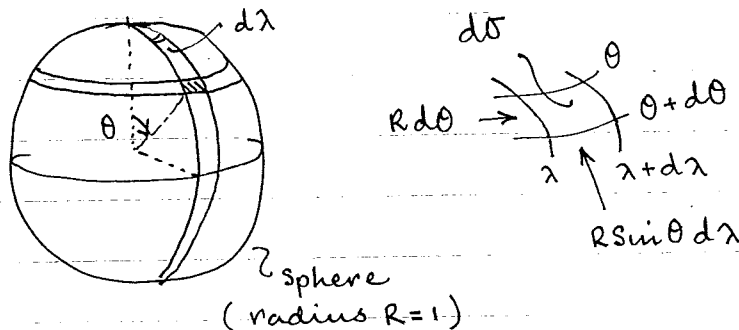 dλ
θ
sphere
(radius R=1)
dσ
θ
R dθ →
θ + dθ
λ
λ + dλ
R Sin θ dλ